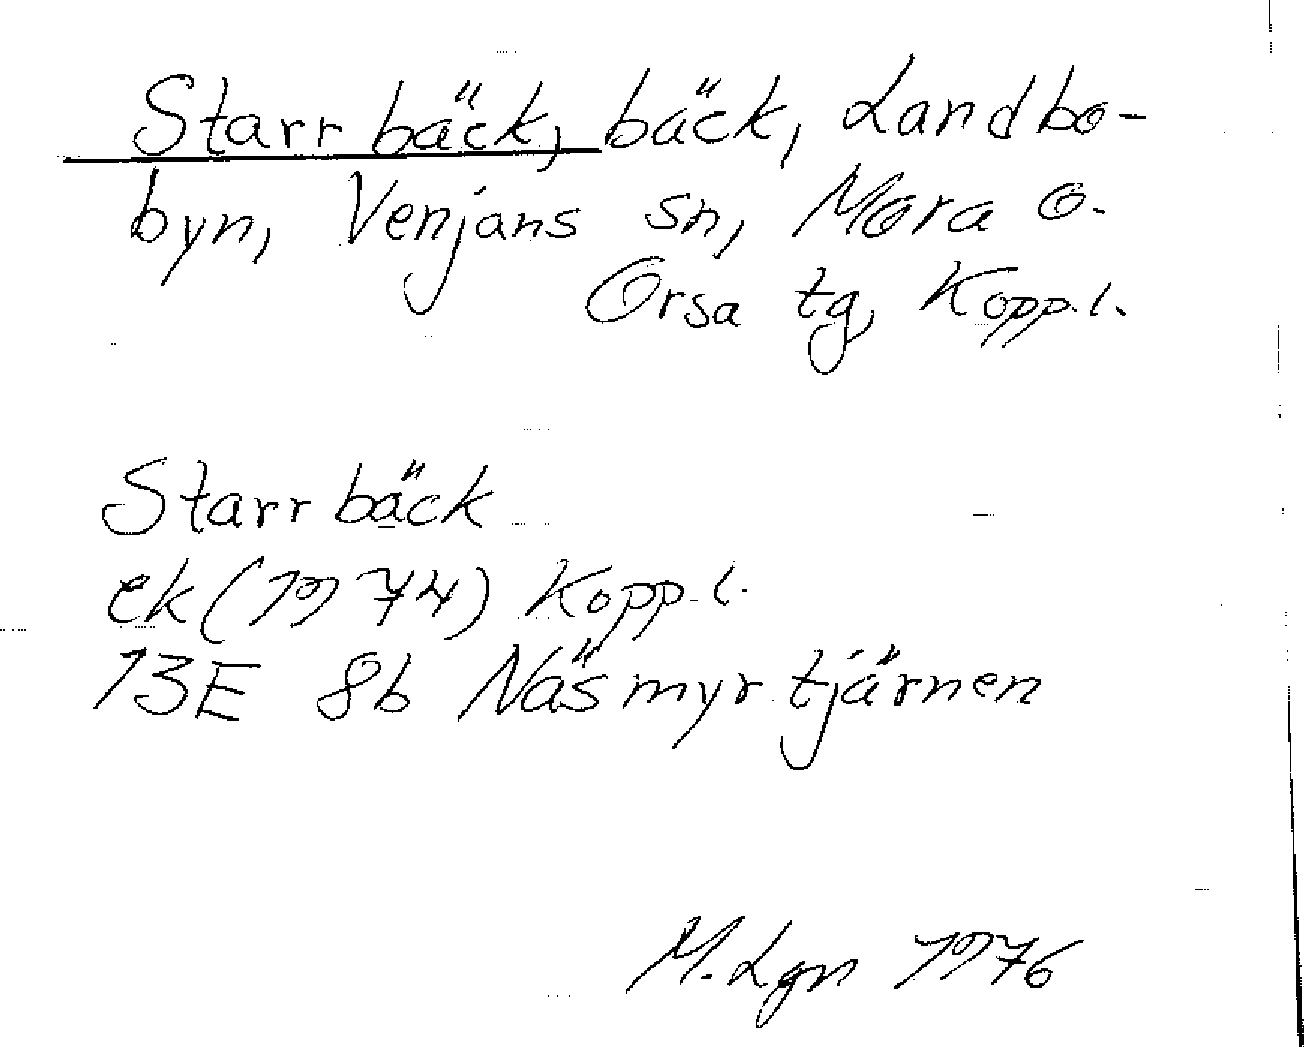 Starrbäck, bäck, Landbo-
byn, Venjans sn, Mora o.
Orsa tg, Kopp.l.
Starrbäck
ek (1974) Kopp.l.
13E 8b Näsmyrtjärnen
M.Lgn 1976